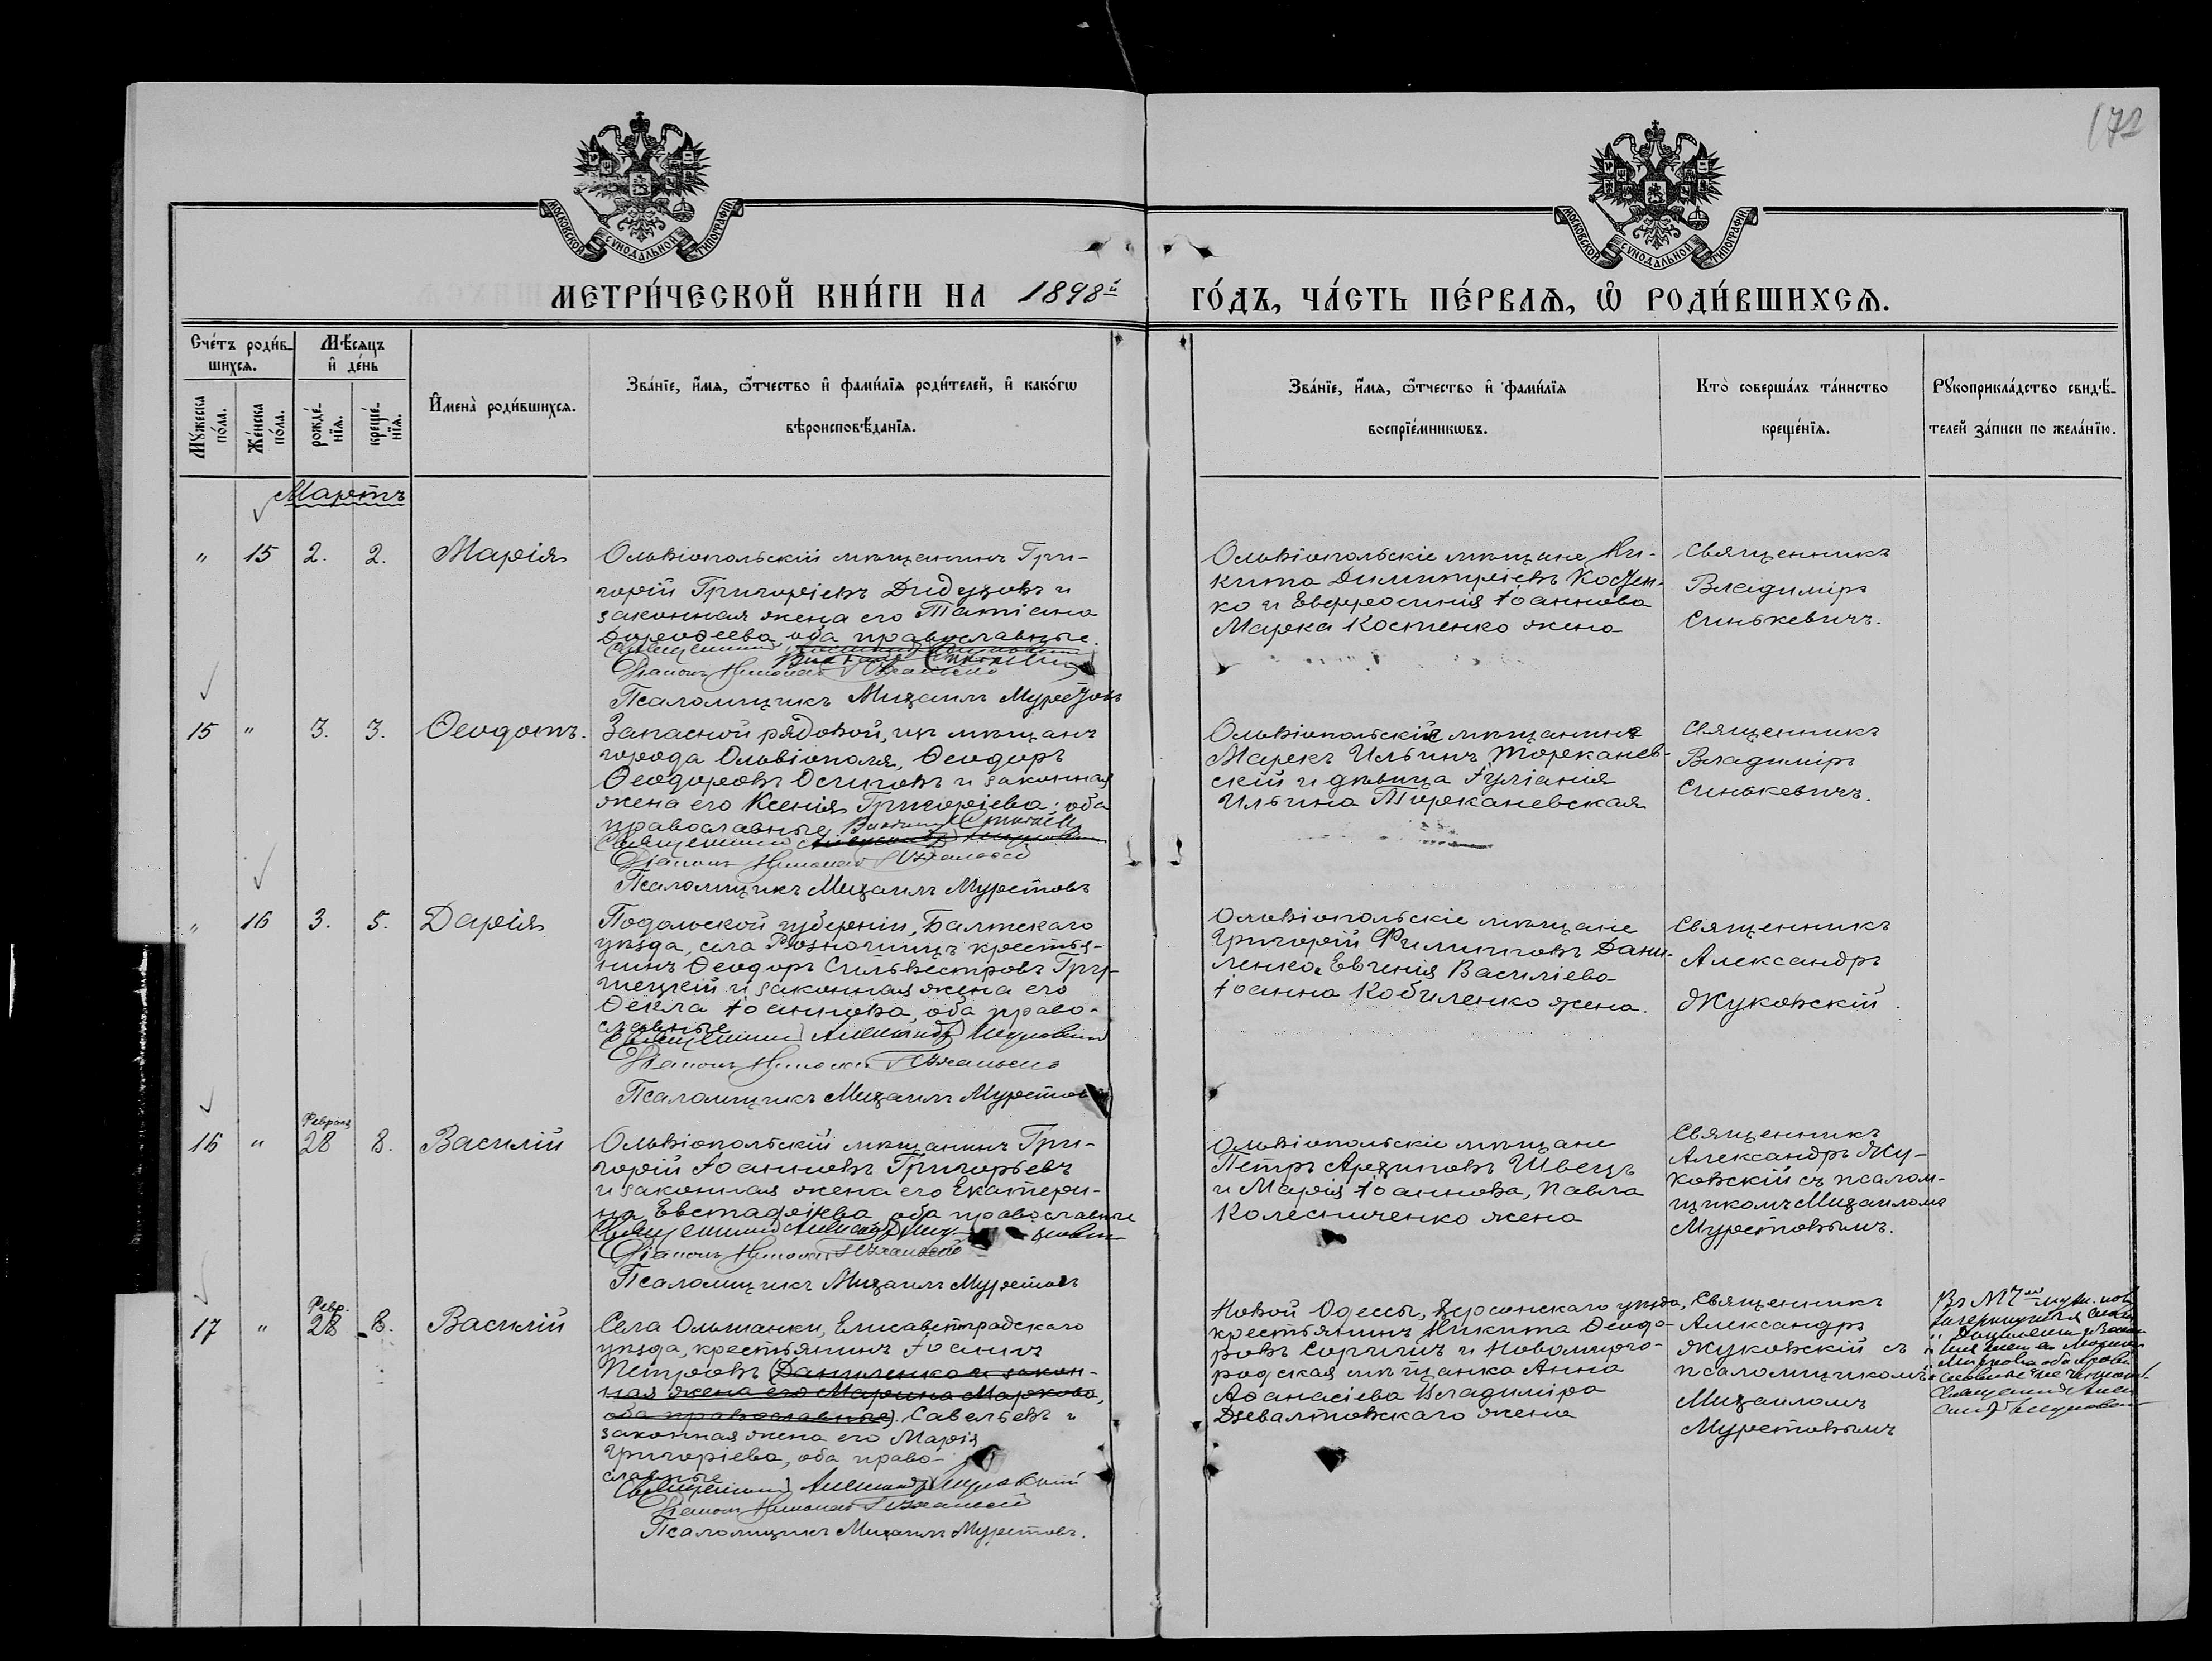 172
МОСКОВСКОЙ СУНОДАЛЬНОЙ ТИПОГРАФІИ
МОСКОВСКОЙ СУНОДАЛЬНОЙ ТИПОГРАФІИ
МЕТРИ́ЧЕСКОЙ КНИ́ГИ НА 1898й ГО́ДЪ, ЧА́СТЬ ПЕ́РВАѦ, Ѡ҆ РОДИ́ВШИХСѦ.
Сче́тъ роди́в-
шихсѧ.
Мѣ́сѧцъ
и҆ де́нь
Мꙋ́жеска по́ла.
Же́нска по́ла.
рожде́-
нїѧ.
креще́-
нїѧ.
И҆мена̀ роди́вшихсѧ.
Зва́нїе, и҆́мѧ, ѻ҆́тчество и҆ фами́лїѧ роди́телей, и҆ како́гѡ
вѣроисповѣ́данїѧ.
Зва́нїе, и҆́мѧ, ѻ҆́тчество и҆ фами́лїѧ
воспрїе́мникѡвъ.
Кто̀ соверша́лъ та́инство
креще́нїѧ.
Рꙋкоприкла́дство свидѣ́-
телей за́писи по жела́нїю.
Мартъ
" 15 2. 2. Марія
Ольвіопольскій мѣщанинъ Гри-
горій Григоріевъ Дидуховъ и
законная жена его Татіана
Дороѳеева, оба православные.
Священникъ
Діаконъ Николай
Псаломщикъ Михаилъ Муретовъ
Ольвіопольскіе мѣщане Ни-
кита Димитріевъ Костен-
ко и Евфросинія Іоаннова
Марка Костенко жена
Священникъ
Владиміръ
Синькевичъ.
15 " 3. 3. Ѳеодотъ.
Запасной рядовой, изъ мѣщанъ
города Ольвіополя, Ѳеодоръ
Ѳеодоровъ Осиповъ и законная
жена его Ксенія Григоріева; оба
православные.
Священникъ
Діаконъ Николай
Псаломщикъ Михаилъ Муретовъ
Ольвіопольскіе мѣщанинъ
Маркъ Ильинъ Торжанев-
скій и дѣвица Іуліанія
Ильина Торжаневская
Священникъ
Владиміръ
Синькевичъ.
" 16 3. 5. Дарія
Подольской губерніи, Балтскаго
уѣзда, села крестья-
нинъ Ѳеодоръ Сильвестровъ
и законная жена его
Ѳекла Іоаннова, оба право-
славные
Священникъ Александръ Жуковскій
Діаконъ Николай
Псаломщикъ Михаилъ Муретовъ
Ольвіопольскіе мѣщане
Григорій Филипповъ Дани-
ленко и Евгенія Василіева
Іоанна Кобиленко жена.
Священникъ
Александръ
Жуковскій.
16 " Февраля 28 8. Василій
Ольвіопольскій мѣщанинъ Гри-
горій Іоанновъ Григорьевъ
и законная жена его Екатери-
на Евстафіева оба православные
Священникъ Александръ Жуковскій
Діаконъ Николай
Псаломщикъ Михаилъ Муретовъ
Ольвіопольскіе мѣщане
Петръ Архиповъ Швецъ
и Марія Іоаннова, Павла
Колесниченко жена
Священникъ
Александръ Жу-
ковскій съ псалом-
щикомъ Михаиломъ
Муретовымъ.
17 " Февр. 28 8. Василій
Села Ольшанки, Елисаветградскаго
уѣзда, крестьянинъ Іоаннъ
Петровъ (Даниленко и закон-
ная жена его Марина Маркова,
оба православные). Савельевъ и
законная жена его Марія
Григоріева, оба право-
славные
Священникъ Александръ Жуковскій
Діаконъ Николай
Псаломщикъ Михаилъ Муретовъ.
Новой Одессы, Херсонскаго уѣзда,
крестьянинъ Никита Ѳеодо-
ровъ и Новомирго-
родская мѣщанка Анна
Аѳанасіева Владиміра
Дзевалтовскаго жена
Священникъ
Александръ
Жуковскій съ
псаломщикомъ
Михаиломъ
Муретовымъ